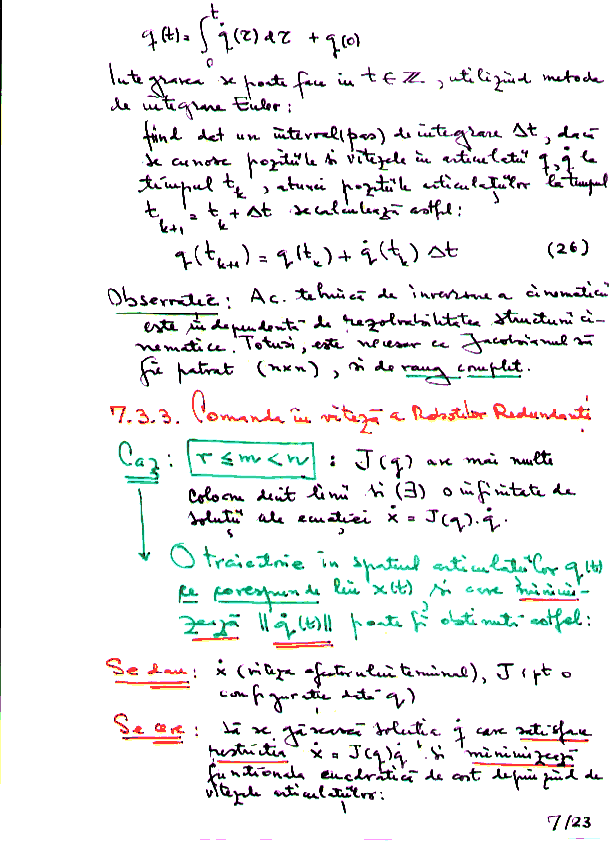 q(t) = ∫₀ᵗ q̇(τ) dτ + q(0)
Integrarea se poate face in t ∈ ℤ, utilizînd metoda
de integrare Euler:
fiind dat un interval (pas) de integrare Δt, dacă
se cunosc pozițiile și vitezele in articulații q, q̇ la
timpul t_k, atunci pozițiile articulațiilor la timpul
t_{k+1} = t_k + Δt se calculează astfel:
q(t_{k+1}) = q(t_k) + q̇(t_k) Δt (26)
Observație: Ac. tehnică de inversare a cinematicii
este independentă de rezolvabilitatea structurii ci-
nematice. Totuși, este necesar ca Jacobianul să
fie pătrat (n×n), și de rang complet.
7.3.3. Comanda in viteză a Roboților Redundanți
Caz: r ≤ m < n : J(q) are mai multe
coloane decît linii și (∃) o infinitate de
soluții ale ecuației ẋ = J(q)·q̇.
O traiectorie in spațiul articulațiilor q(t)
ce corespunde lui x(t) și care minimi-
zează ‖q̇(t)‖ poate fi obținută astfel:
Se dau: ẋ (viteza efectorului terminal), J (pt o
configurație dată q)
Se cere: să se găsească soluția q̇ care satisface
restricția ẋ = J(q)q̇ și minimizează
funcționala cuadratică de cost depinzînd de
vitezele articulațiilor:
7/23